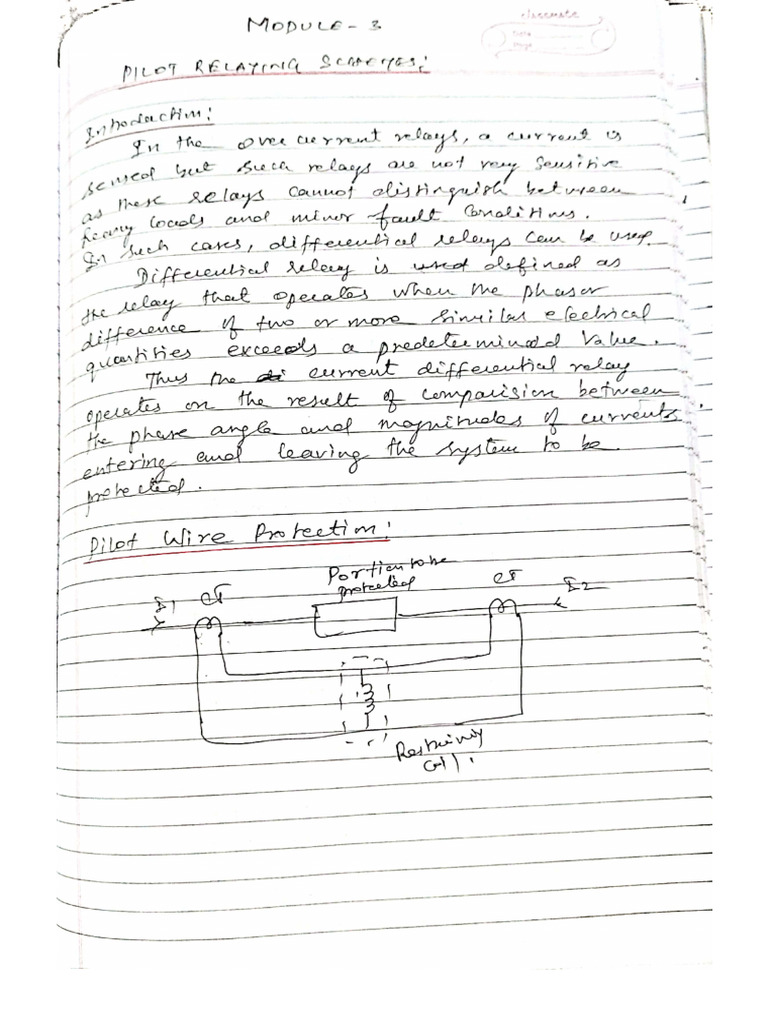 classmate
Date
Page
MODULE - 3
PILOT RELAYING SCHEMES:
Introduction:
In the over current relays, a current is
sensed but such relays are not very sensitive
as these relays cannot distinguish between
heavy loads and minor fault Conditions.
In such cases, differential relays can be used.
Differential relay is used defined as
the relay that operates when the phasor
difference of two or more similar electrical
quantities exceeds a predetermined value.
Thus the di current differential relay
operates on the result of comparision between
the phase angle and magnitudes of currents
entering and leaving the system to be
protected.
Pilot Wire Protection:
Portion to be
protected
I1 CT
CT I2
Restraining
coil.